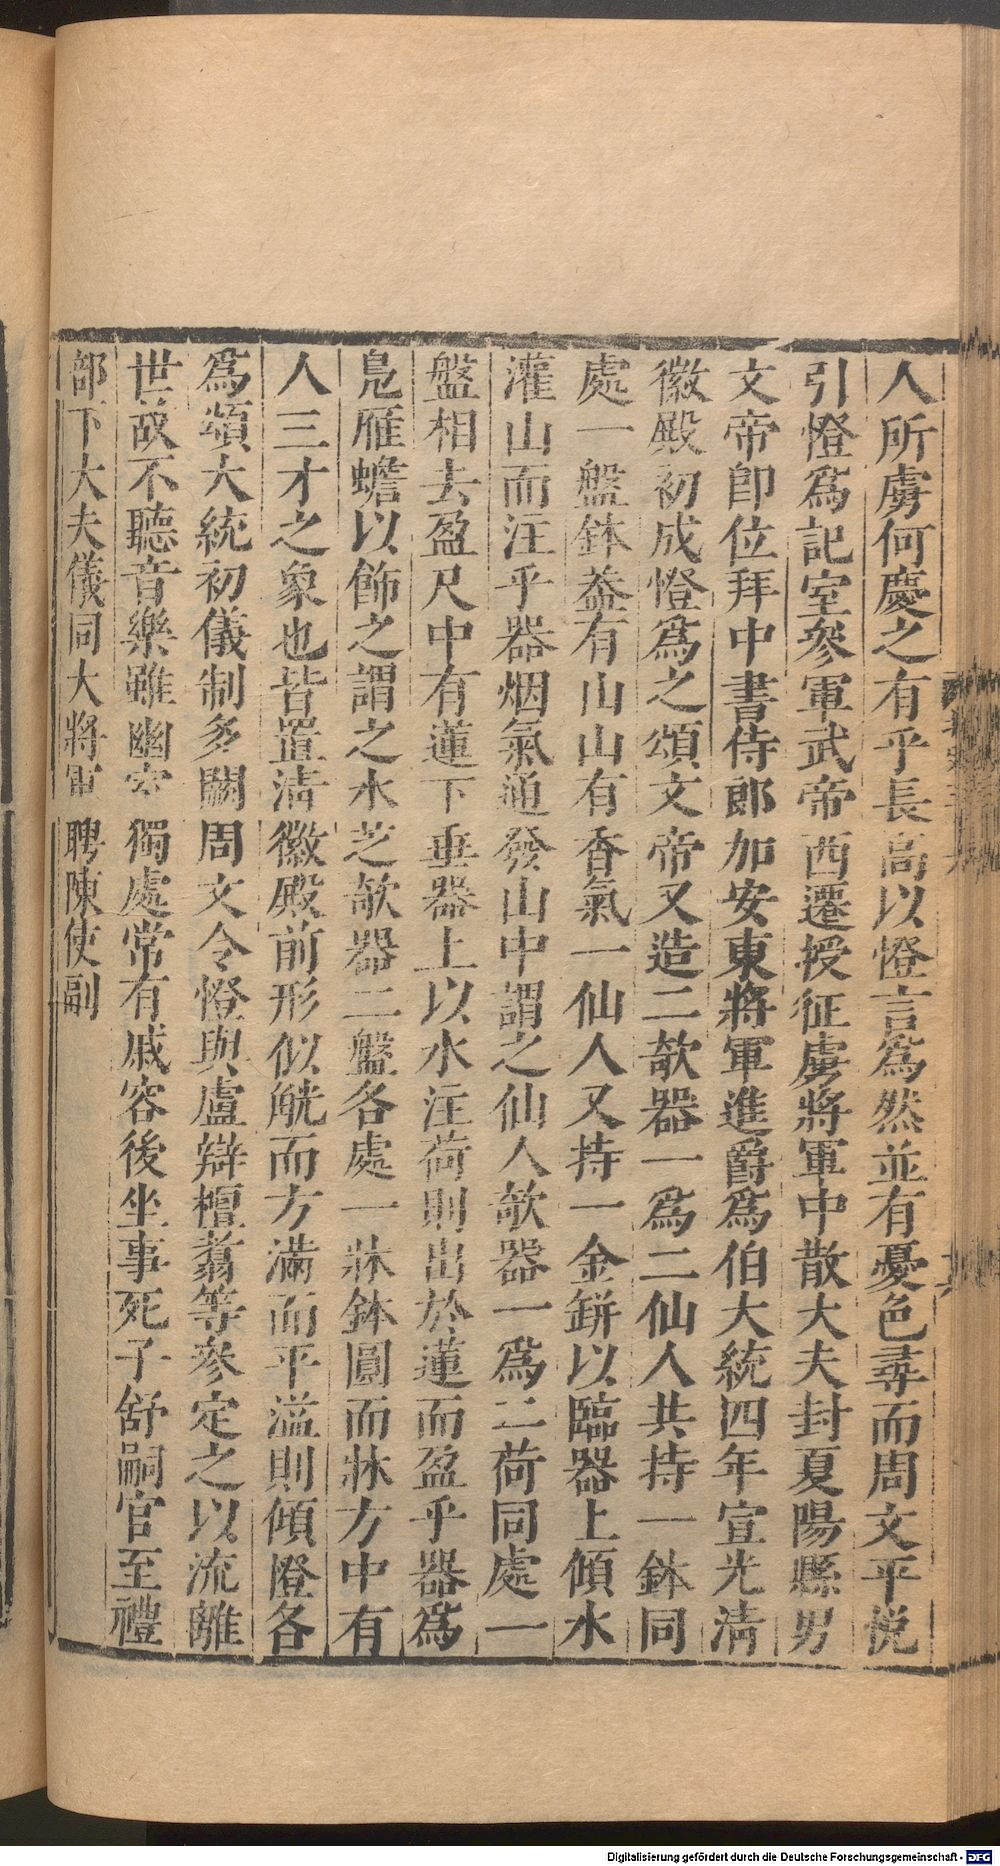 人所虜何慶之有乎長高以憕言爲然並有憂色尋而周文平悅
引憕爲記室參軍武帝西遷授征虜將軍中散大夫封夏陽縣男
文帝卽位拜中書侍郎加安東將軍進爵爲伯大統四年宣光淸
徽殿初成憕爲之頌文帝又造二欹器一爲二仙人共持一鉢同
處一盤鉢葢有山山有香氣一仙人又持一金缾以臨器上傾水
灌山而注乎器烟氣通發山中謂之仙人欹器一爲二荷同處一
盤相去盈尺中有蓮下垂器上以水注荷則出於蓮而盈乎器爲
鳧雁蟾以飾之謂之水芝欹器二盤各處一牀鉢圓而牀方中有
人三才之象也皆置淸徽殿前形似觥而方滿而平溢則傾憕各
爲頌大統初儀制多闕周文令憕與盧辯檀翥等參定之以流離
世故不聽音樂雖幽室獨處常有戚容後坐事死子舒嗣官至禮
部下大夫儀同大將軍聘陳使副
Digitalisierung gefördert durch die Deutsche Forschungsgemeinschaft - DFG